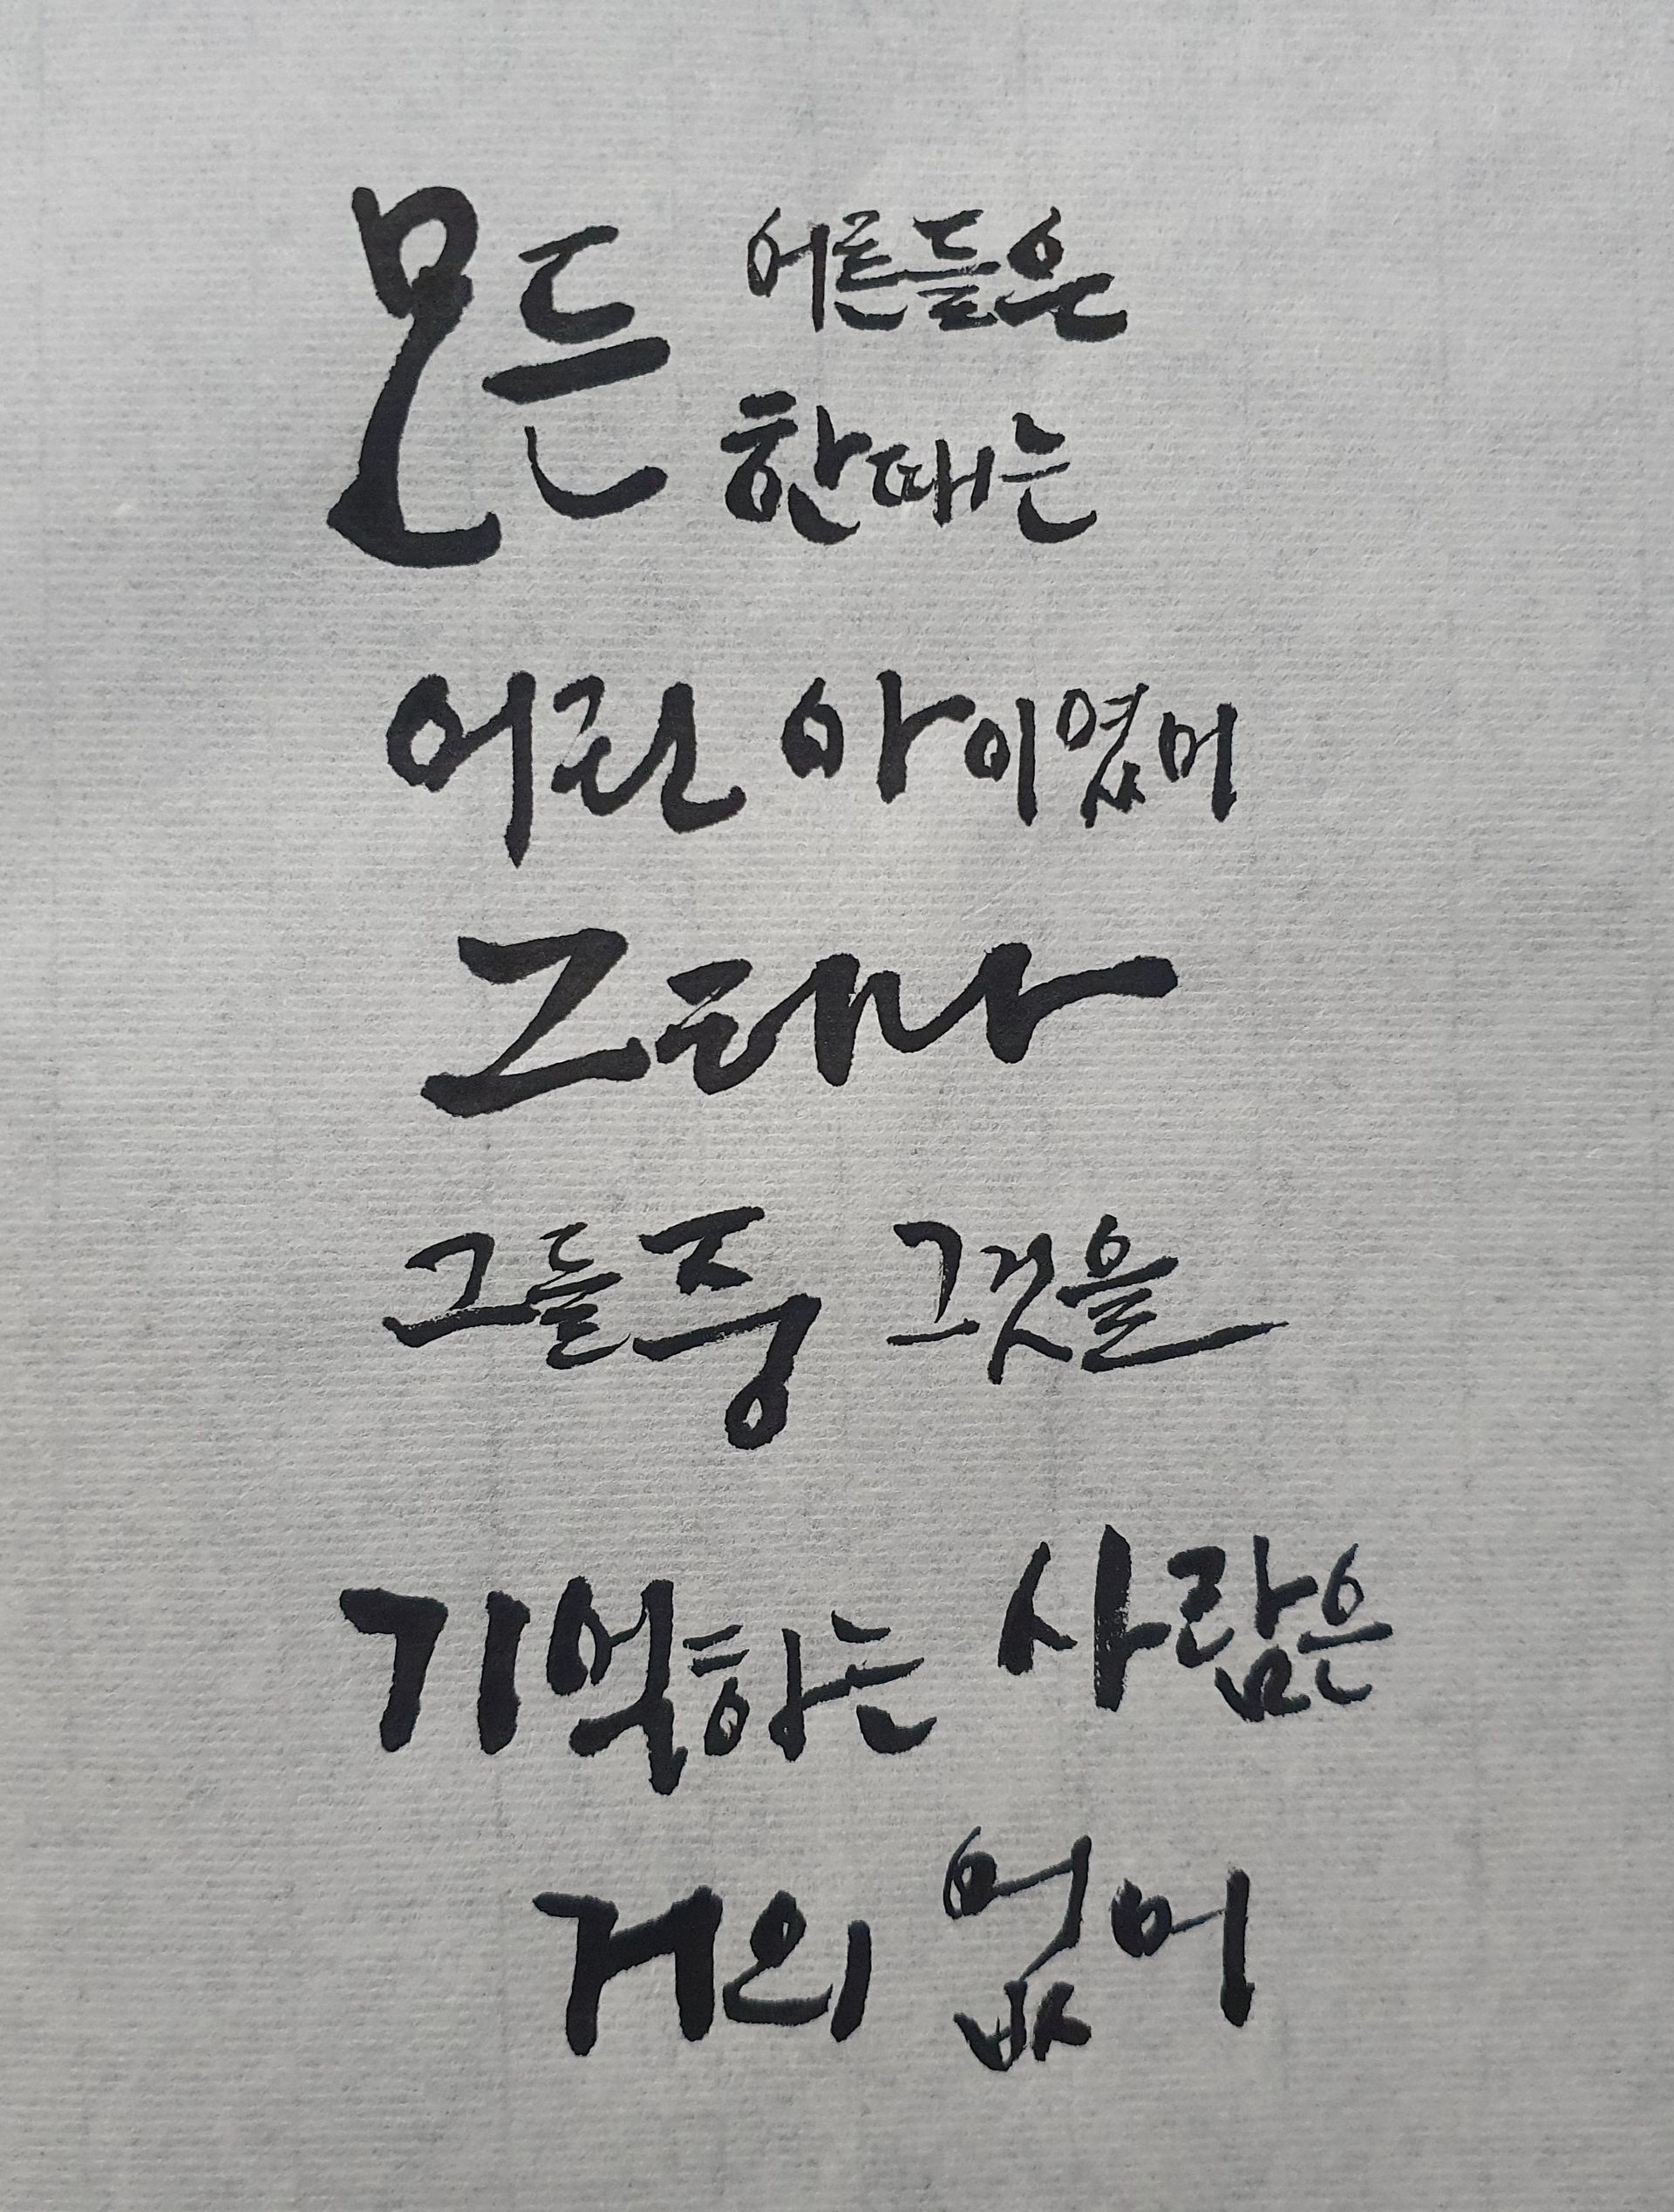 모든 어른들은
한때는
어린 아이였어
그러나
그들중 그것을
기억하는 사람은
거의 없어